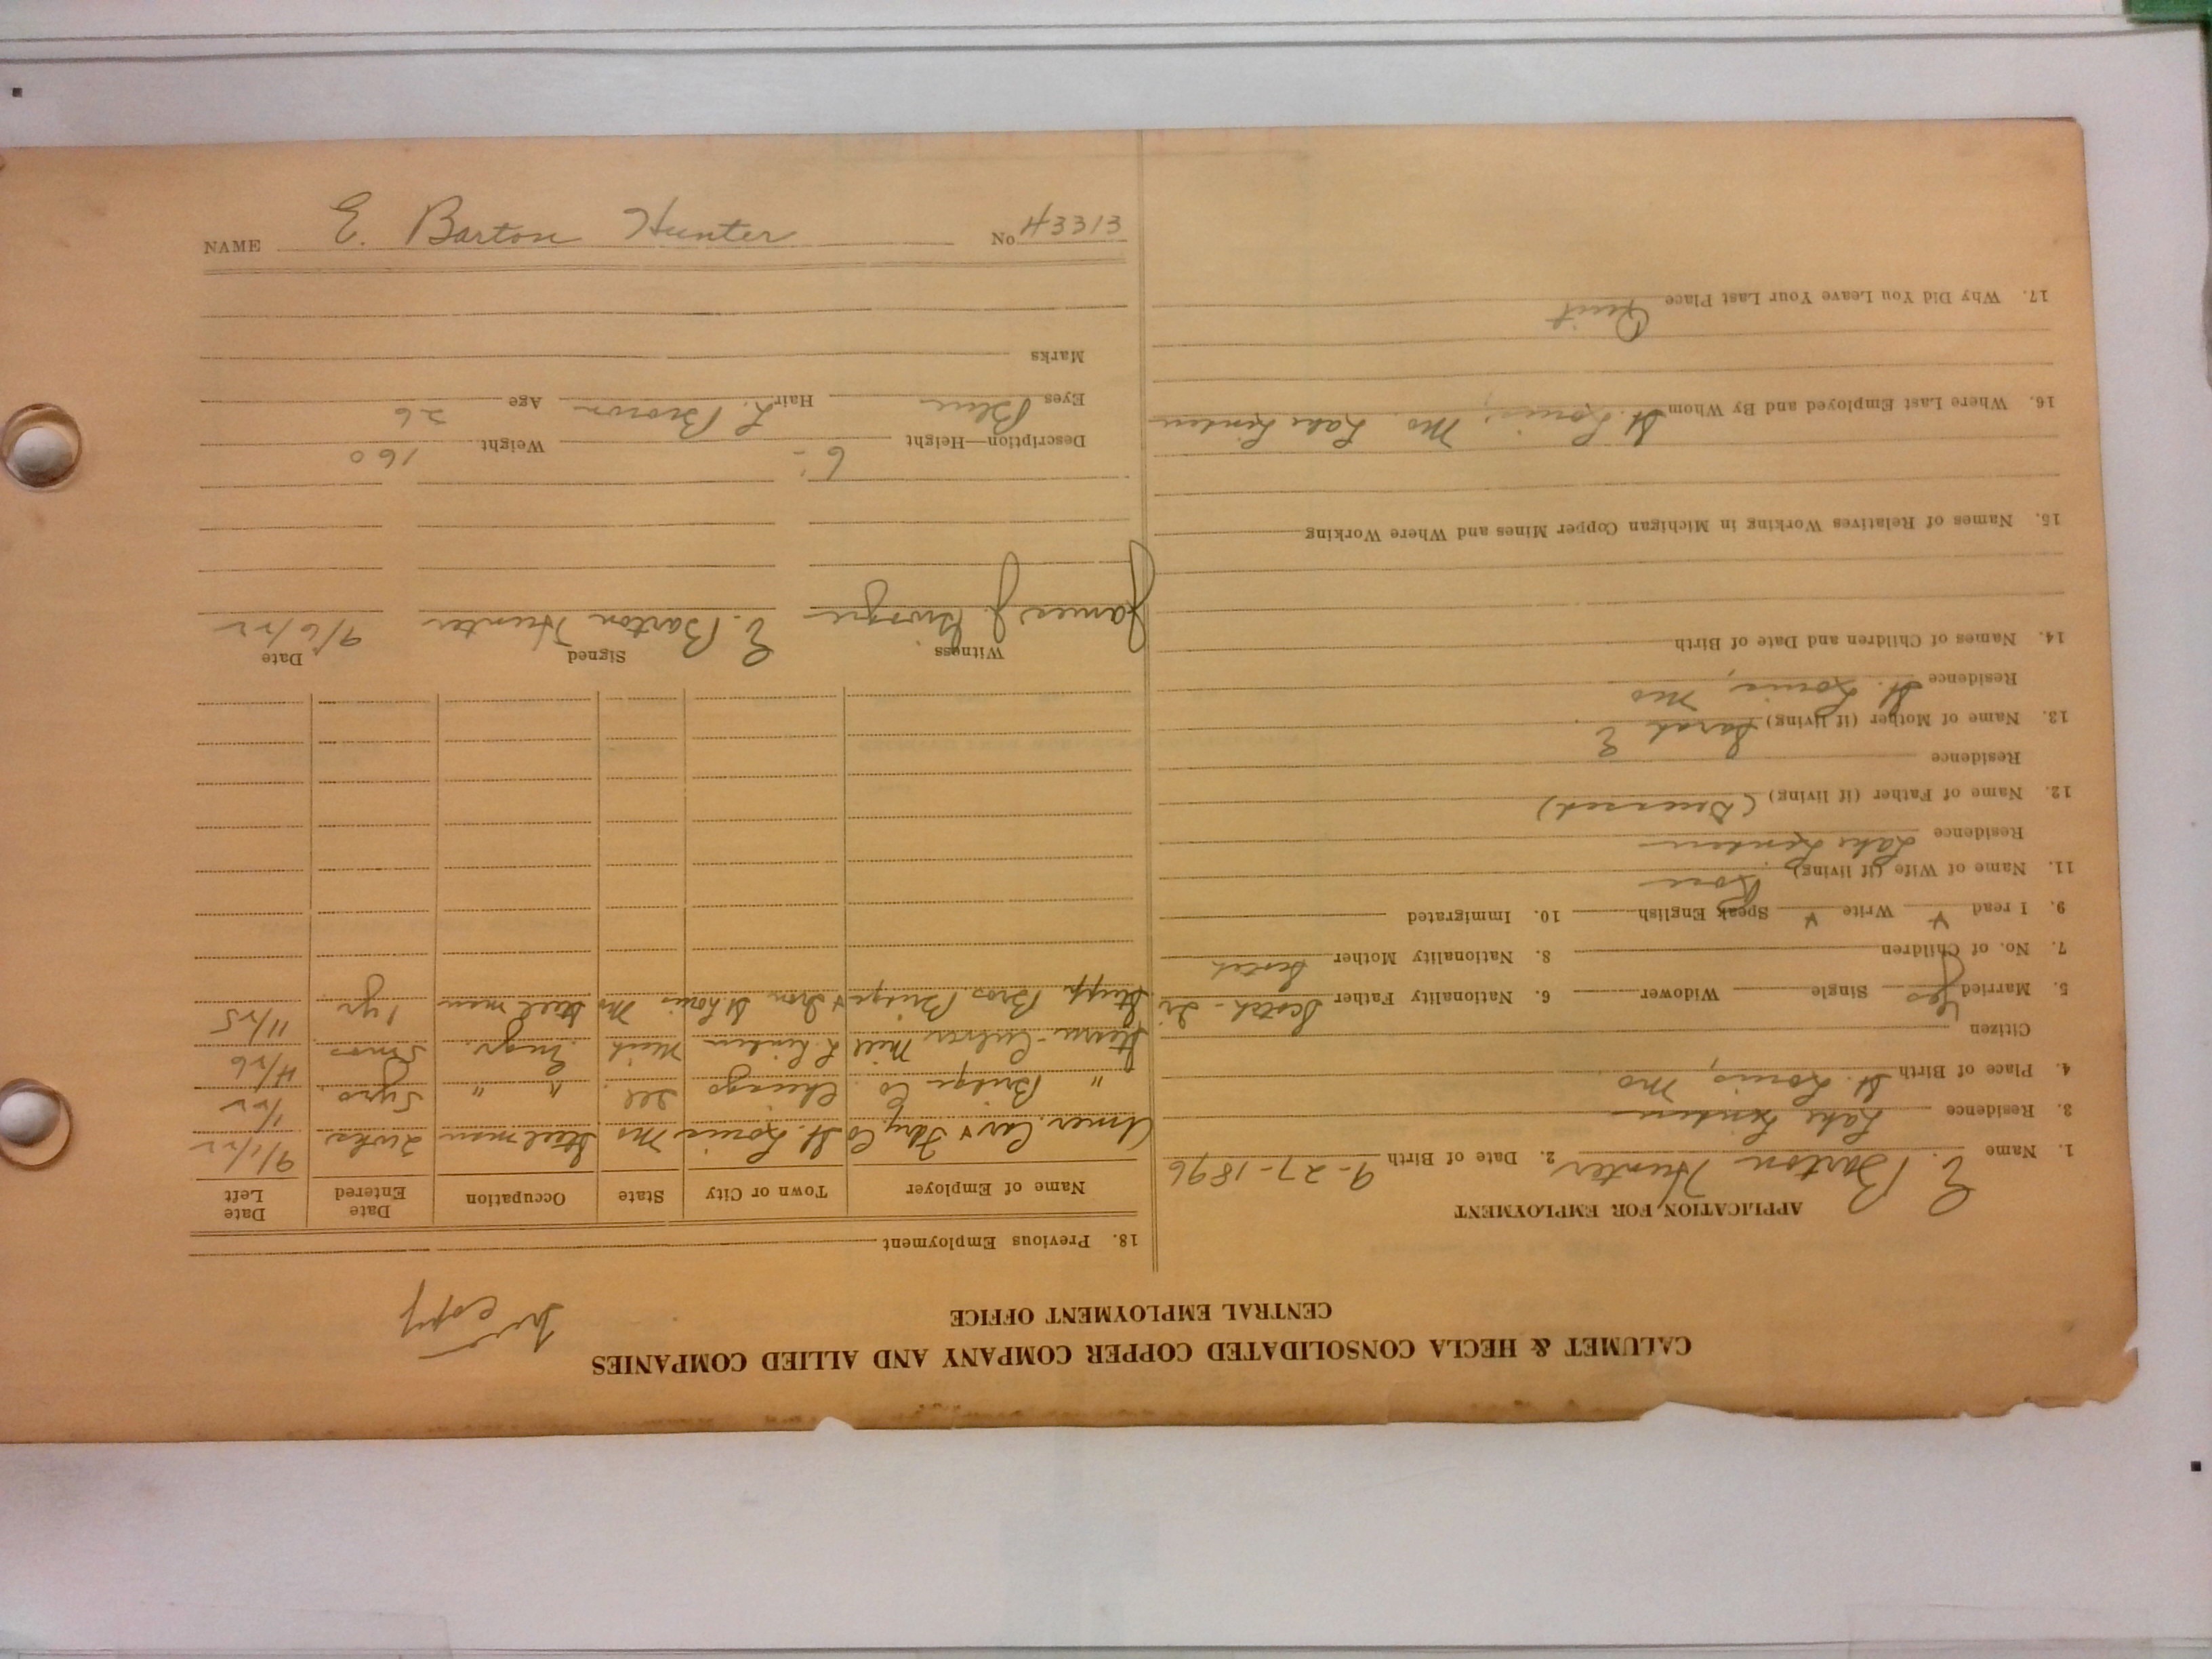 CALUMET & HECLA CONSOLIDATED COPPER COMPANY AND ALLIED COMPANIES
CENTRAL EMPLOYMENT OFFICE
copy
APPLICATION FOR EMPLOYMENT
1. Name E. Barton Hunter 2. Date of Birth 9-27-1896
3. Residence Lake Linden
4. Place of Birth St. Louis, Mo
Citizen
5. Married Yes Single Widower 6. Nationality Father Scotch-Ir
7. No. of Children 8. Nationality Mother Scotch
9. I read Write Speak English 10. Immigrated
11. Name of Wife (if living) Rose
Residence Lake Linden
12. Name of Father (if living) (Deceased)
Residence
13. Name of Mother (if living) Sarah E
Residence St. Louis, Mo
14. Names of Children and Date of Birth
15. Names of Relatives Working in Michigan Copper Mines and Where Working
16. Where Last Employed and By Whom St. Louis, Mo. Lake Linden
17. Why Did You Leave Your Last Place Quit
18. Previous Employment
Name of Employer Town or City State Occupation Date Entered Date Left
Amer. Car & Fdry Co St. Louis Mo Steelman 2wks 9/1/22
" Bridge Co Chicago Ill. " " 5yrs. 1/22
Stearns-Culver Mill L. Linden Mich Engr. 5mos 4/26
Stupp Bros. Bridge & Iron St Louis Mo Steel man 1 yr 11/25
Witness Signed Date
James J. E. Barton Hunter 9/6/22
Description—Height 6'- Weight 160
Eyes Blue Hair L. Brown Age 26
Marks
NAME E. Barton Hunter No H3313